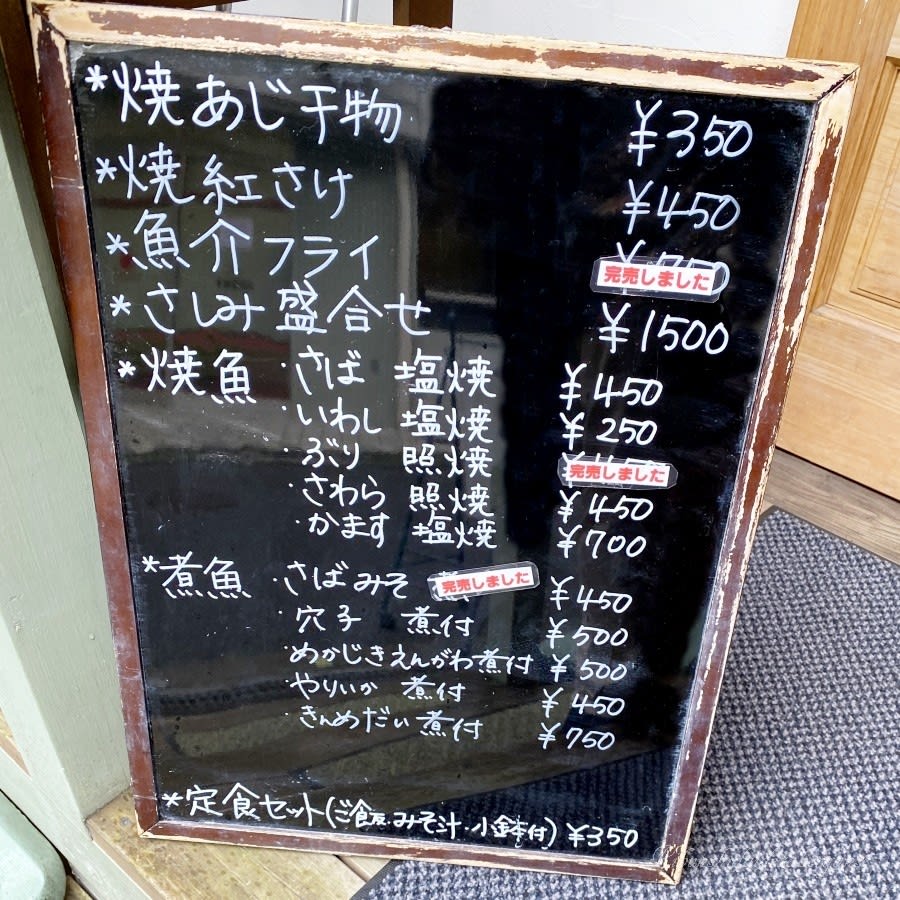 *焼あじ干物 ¥350
*焼紅さけ ¥450
*魚介フライ 完売しました
*さしみ盛合せ ¥1500
*焼魚 ・さば 塩焼 ¥450
・いわし 塩焼 ¥250
・ぶり 照焼 完売しました
・さわら 照焼 ¥450
・かます 塩焼 ¥700
*煮魚 ・さばみそ 完売しました ¥450
・穴子 煮付 ¥500
・めかじきえんがわ煮付 ¥500
・やりいか 煮付 ¥450
・きんめだい煮付 ¥750
*定食セット(ご飯・みそ汁・小鉢付) ¥350